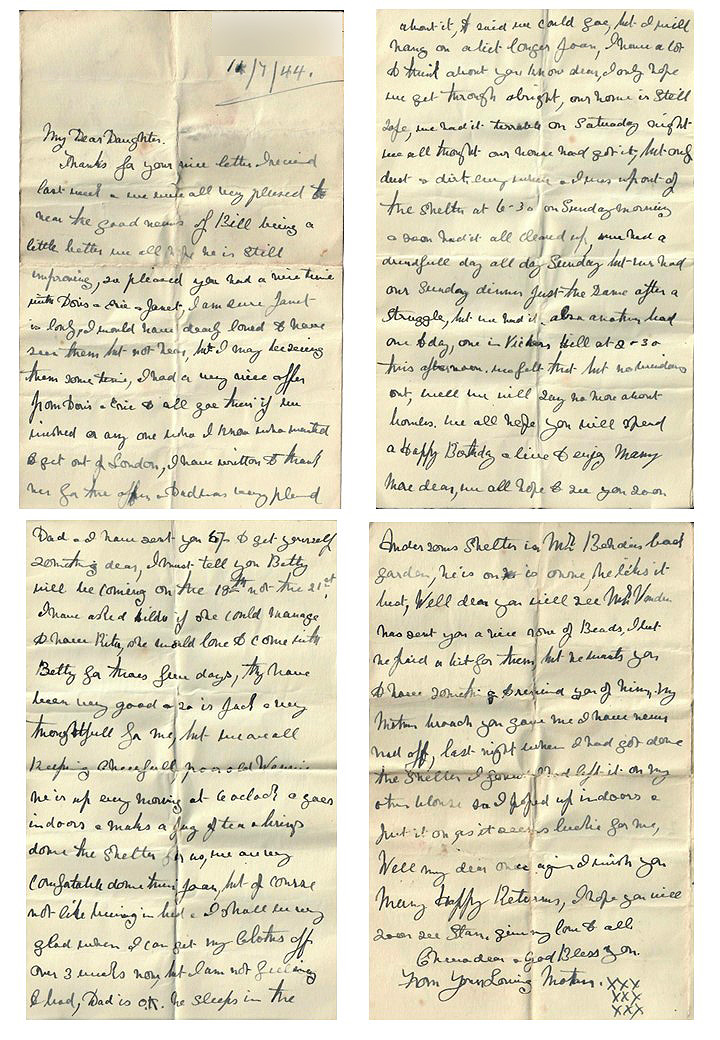 11/7/44.
My Dear Daughter.
Thanks for your nice letter I received
last week & we were all very pleased to
hear the good news of Bill being a
little better we all hope he is still
improving, so pleased you had a nice time
with Doris & Eric & Janet, I am sure Janet
is lovly, I would have dearly loved to have
seen them but not now, but I may be seeing
them some time, I had a very nice offer
from Doris & Eric to all goe there if we
wished or any one who I know who wanted
to get out of London, I have written to thank
her for the offer & Dad was very pleased
about it, & said we could goe, but I will
hang on a bit longer Joan, I have a lot
to think about you know dear, I only hope
we get through alright, our home is still
safe, we had it terrable on Saturday night
we all thought our house had got it, but only
dust & dirt every where & I was up out of
the shelter at 6-30 on Sunday morning
& soon had it all cleared up, we had a
dreadfull day all day Sunday but we had
our Sunday dinner just the same after a
struggle, but we had it. also another bad
one to day, one in Vickers Hill at 2-30
this afternoon. we felt that but no windows
out, well we will say no more about
bombs. we all hope you will spend
a Happy Birthday & live to enjoy Many
More dear, we all hope to see you soon
Dad & I have sent you to get yourself
something dear, I must tell you Betty
will be coming on the 18th not the 21st.
I have asked Hilda if she could manage
to have Rita, she would love to come with
Betty for thoes few days, they have
been very good & so is Jack & very
thoughtfull for me, but we are all
keeping cheerfull, poor old
he is up every morning at 6 oclock & goes
indoors & makes a Jug of tea & brings
down the shelter for us, we are very
comfatable down there Joan, but of course
not like being in bed & I shall be very
glad when I can get my cloths off
over 3 weeks now, but I am not feeling
to bad, Dad is O.K. he sleeps in the
Andersons Shelter in Mr. back
garden, he is on his owne, he likes it
best, Well dear you will see Mr
has sent you a nice rone of Beads, I bet
he paid a bit for them, but he wants you
to have something to remind you of him. my
Mother broach you gave me I have never
had off, last night when I had got down
the shelter I found I had left it on my
other blouse so I poped up indoors &
put it on, as it seems luckie for me,
Well my dear once again I wish you
Many Happy Returns, I hope you will
soon see Stan, give my love to all
Cheerio dear & God Bless you.
From Your Loving Mother. xxx
xxx
xxx